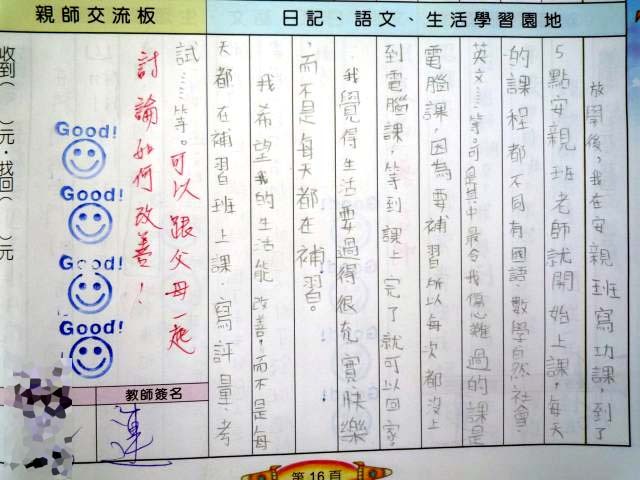 日記、語文、生活學習園地
放學後，我在安親班寫功課，到了
5點安親班老師就開始上課，每天
的課程都不同有國語.數學自然.社會.
英文……等。可是其中最令我傷心難過的課是
電腦課，因為要補習所以每次都沒上
到電腦課，等到課上完了就可以回家。
我覺得生活要過得很充實.快樂
，而不是每天都在補習。
我希望我的生活能改善，而不是每
天都在補習班上課.寫評量.考
試……等。可以跟父母一起
討論如何改善！
親師交流板
Good!
Good!
Good!
Good!
收到（ ）元，找回（ ）元
教師簽名
第16頁